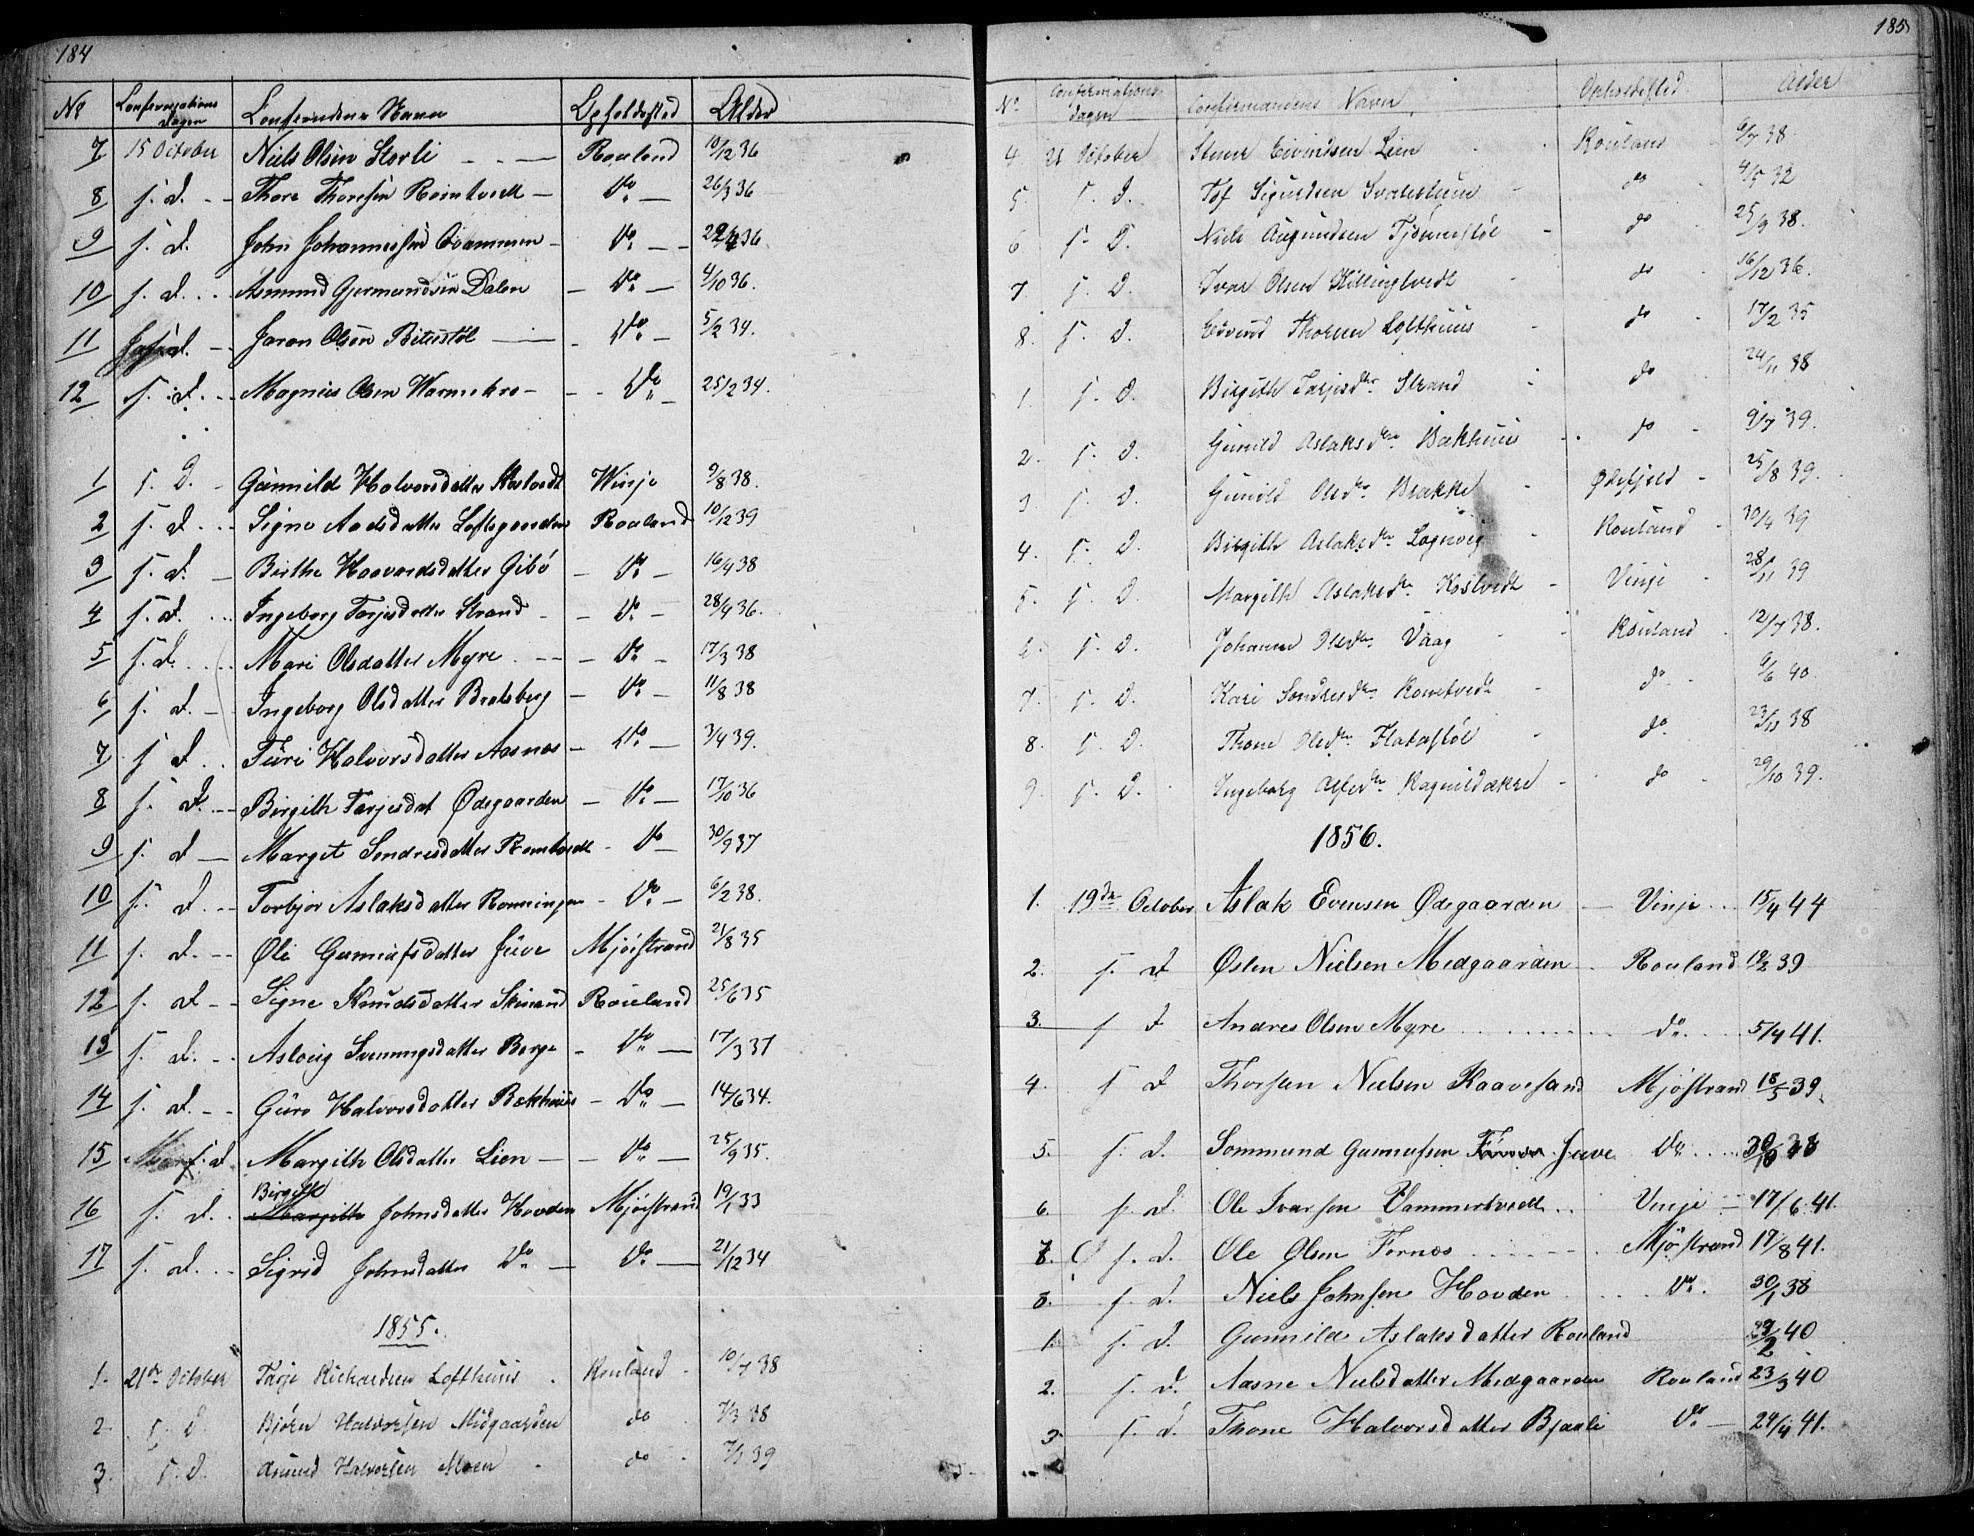 184
No Confirmations Dagen Confirmdens Navn Opholdssted Alder
7 15 October Niels Olsen Storli Rouland 10/12 36
8 s. D. Thore Thoresen Romtvedt Do 26/3 36
9 s. D. John Johannesen Do 36
10 s. D. Asmund Gjermundsen Dalen Do 4/10 36.
11 s. d. Jaran Olsen Bitustöl Do 5/2 34.
12 s. D. Magnus Olsen Do 25/2 34.
1 s. D. Gunnild Halvorsdatter Winje 9/8 38.
2 s. D. Signe Aadsdatter Loftsgaarden Rouland 10/12 39
3 s. D. Birthe Haavardsdatter Gibö Do 16/4 38
4 s. D. Ingeborg Tarjesdatter Strand Do 28/4 36.
5 s. D. Mari Olsdatter Myre Do 17/3 38
6 s. D. Ingeborg Olsdatter Bratsberg Do 11/8 38
7 s. D. Turi Halvorsdatter Aasnæs Do 3/4 39.
8 s. D. Birgith Tarjesdat Ødegaarden Do 17/10 36
9 s. D. Margit Sondresdatter Romtvedt Do 30/9 37
10 s. D. Torbjör Aslaksdatter Rønningen Do 6/2 38.
11 s. D. Øli Gunnufsdatter Juve Mjösstrand 21/8 35
12 s. D. Signe Knudsdatter Skinand Rouland 25/6 35
13 s. D. Asloug Sveinungsdatter Berge Do 17/3 37
14 s. D. Guro Halvorsdatter Bækhuus Do 14/6 34.
15 s. d. Margith Olsdatter Lien Do 25/9 35.
Birgith
16 s. D. Margith Johnsdatter Hovden Mjösstrand 19/1 33
17 s. D. Sigrid Johnsdatter Do Do 21/12 34
1855.
1. 21de October Tarje Richardsen Lofthuus Rouland 10/7 38
2 s. D. Bjørn Halvorsen Midgaarden do 7/3 38
3. s. D. Asmund Halvorsen Moen do 39
185
No Confirmations dagen Confirmandens Navn Opholdssted Alder
4 21 October Stener Eivindsen Lien Rouland 6/7 38.
5. s. D. Tof Sigurdsen do 4/5 32
6 s. D. Niels Augundsen Tjönnestöl do 25/9 38.
7. s. D. Ivar Olsen Killingtvedt do 16/12 36.
8. s. D. Eivind Thoresen Lofthuus do 17/2 35
1. s. D. Birgith Tarjesdtr Strand do 24/11 38
2. s. D. Gunild Aslaksdtr Bækhuus do 9/7 39.
3 s. D. Gunild Olsdtr Bakke Ødefjeld 25/8 39.
4. s. D. Birgith Aslaksdtr Lognvig Rouland 30/4 39
5. s. D. Margith Aslaksdtr Kostvedt Vinje 28/11 39
6. s. D. Johanne Olsdtr Vaag Rouland 12/7 38.
7. s. D. Kari Sondresdtr Romtvedt do 9/6 40.
8. s. D. Thone Olsdtr Flatastöl do 23/11 38
9. s. D. Ingeborg Olsdtr Ragnildakre do 29/10 39.
1856.
1. 19de October Aslak Evensen Ødegaarden Vinje 15/4 44
2. s. D. Østen Nielsen Medgaarden Rouland 19/2 39
3. s. D. Andres Olsen Myre do 5/4 41.
4. s. D. Thorsten Nielsen Kaavesand Mjösstrand 18/5 39.
5. s. D. Sommund Gunnufsen Fornæs Juve Do 30/10 38
6. s. D. Ole Ivarsen Vammertvedt Vinje 17/6 41.
7. s. D. Ole Olsen Fornæs Mjösstrand 17/8 41.
8. s. D. Niels Johnsen Hovden Do 30/1 38
1. s. D. Gunnild Aslaksdatter Rouland 29/2 40
2. s. D. Aasne Nielsdatter Medgaarden Rouland 23/3 40
3. s. D. Thone Halvorsdatter Bjaali Do 24/4 41.